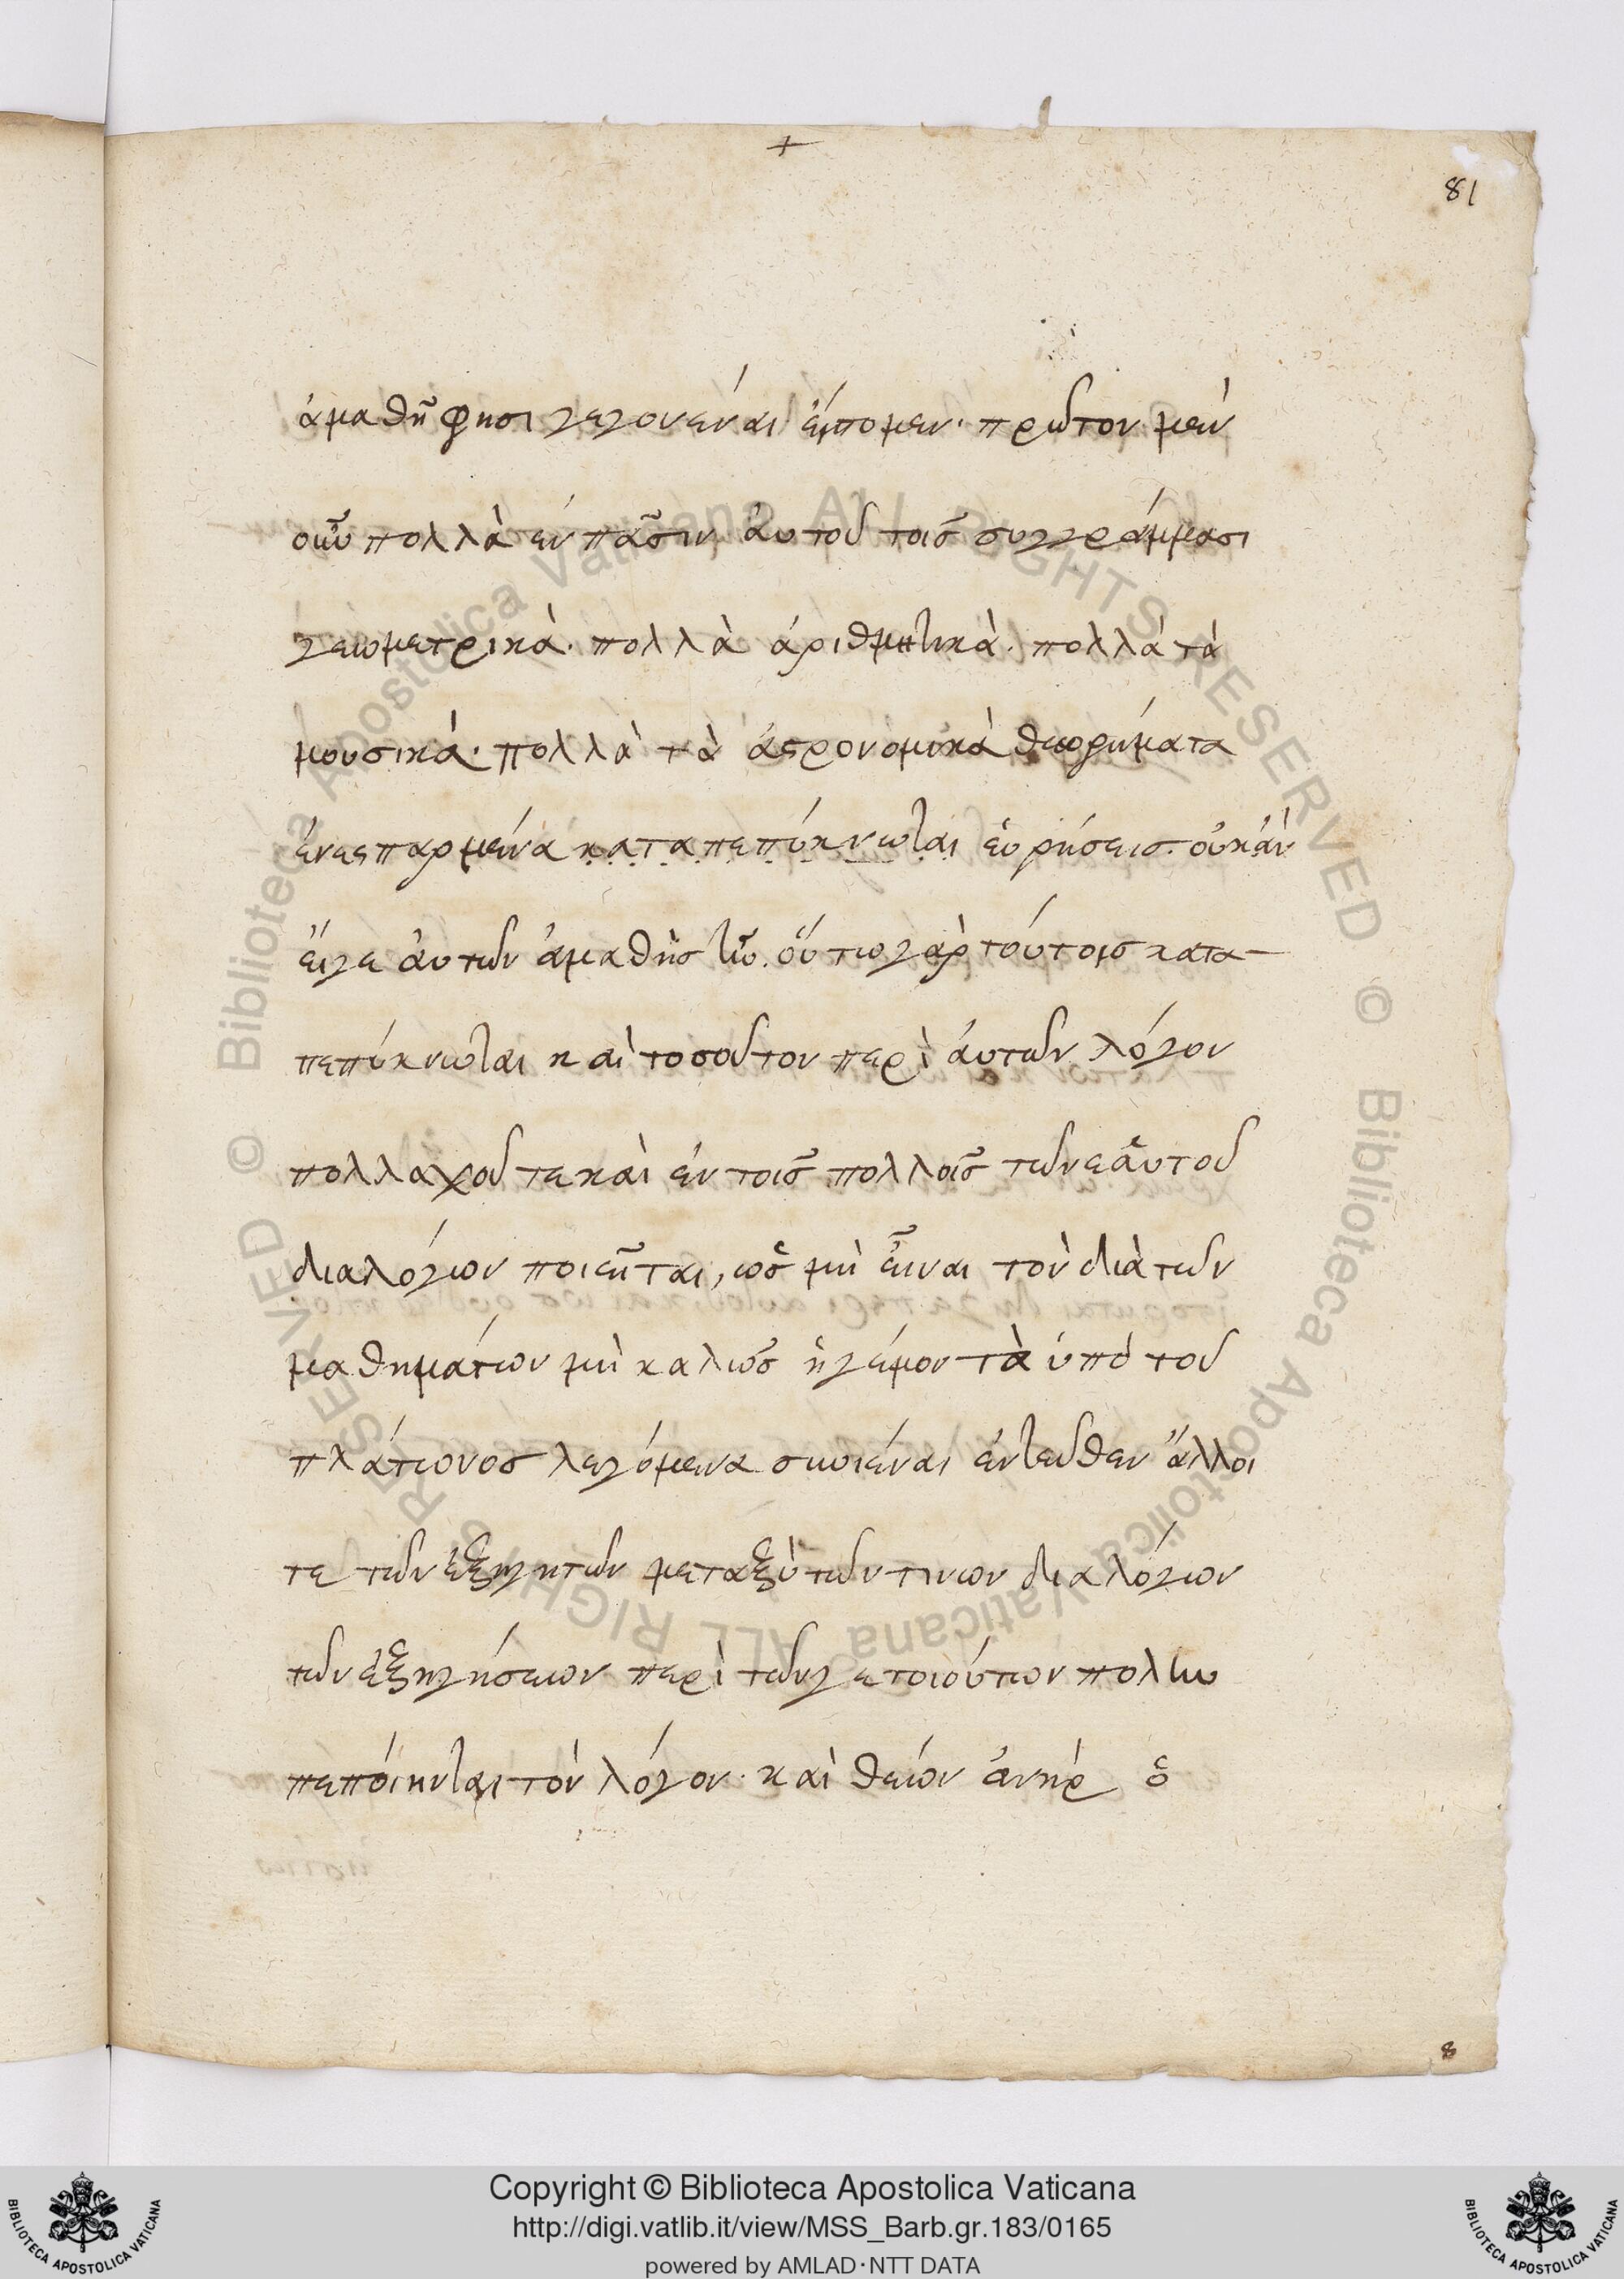 +
81
ἀμαθῆ φησι γεγονέναι εἴπομεν· πρῶτον μὲν
οὖν πολλὰ ἐν πᾶσιν αὐτοῦ τοῖς συγγράμμασι
γεωμετρικὰ· πολλὰ ἀριθμητικὰ· πολλὰ τὰ
μουσικά· πολλὰ τὰ ἀστρονομικὰ θεωρήματα
ἐνεσπαρμένα καταπεπύκνωται εὑρήσεις· οὐκ ἂν
εἴγε αὐτῶν ἀμαθὴς ἦν· οὕτω γὰρ τούτοις κατα-
πεπύκνωται καὶ τοσοῦτον περὶ αὐτῶν λόγον
πολλαχοῦ τε καὶ ἐν τοῖς πολλοῖς τῶν ἑαυτοῦ
διαλόγων ποιεῖται, ὡς μὴ εἶναι τὸν διὰ τῶν
μαθημάτων μὴ καλῶς ἠγμένον τὰ ὑπὸ τοῦ
πλάτωνος λεγόμενα συνιέναι ἐντεῦθεν ἄλλοι
τε τῶν ἐξηγητῶν μεταξὺ τῶν τινων διαλόγων
τῶν ἐξηγήσεων περὶ τῶν γε τοιούτων πολὺν
πεποίηνται τὸν λόγον· καὶ θεῖον ἀνὴρ ὁ
8
Copyright © Biblioteca Apostolica Vaticana
http://digi.vatlib.it/view/MSS_Barb.gr.183/0165
powered by AMLAD·NTT DATA
BIBLIOTECA APOSTOLICA VATICANA
BIBLIOTECA APOSTOLICA VATICANA
© Biblioteca Apostolica Vaticana ALL RIGHTS RESERVED © Biblioteca Apostolica Vaticana ALL RIGHTS RESERVED